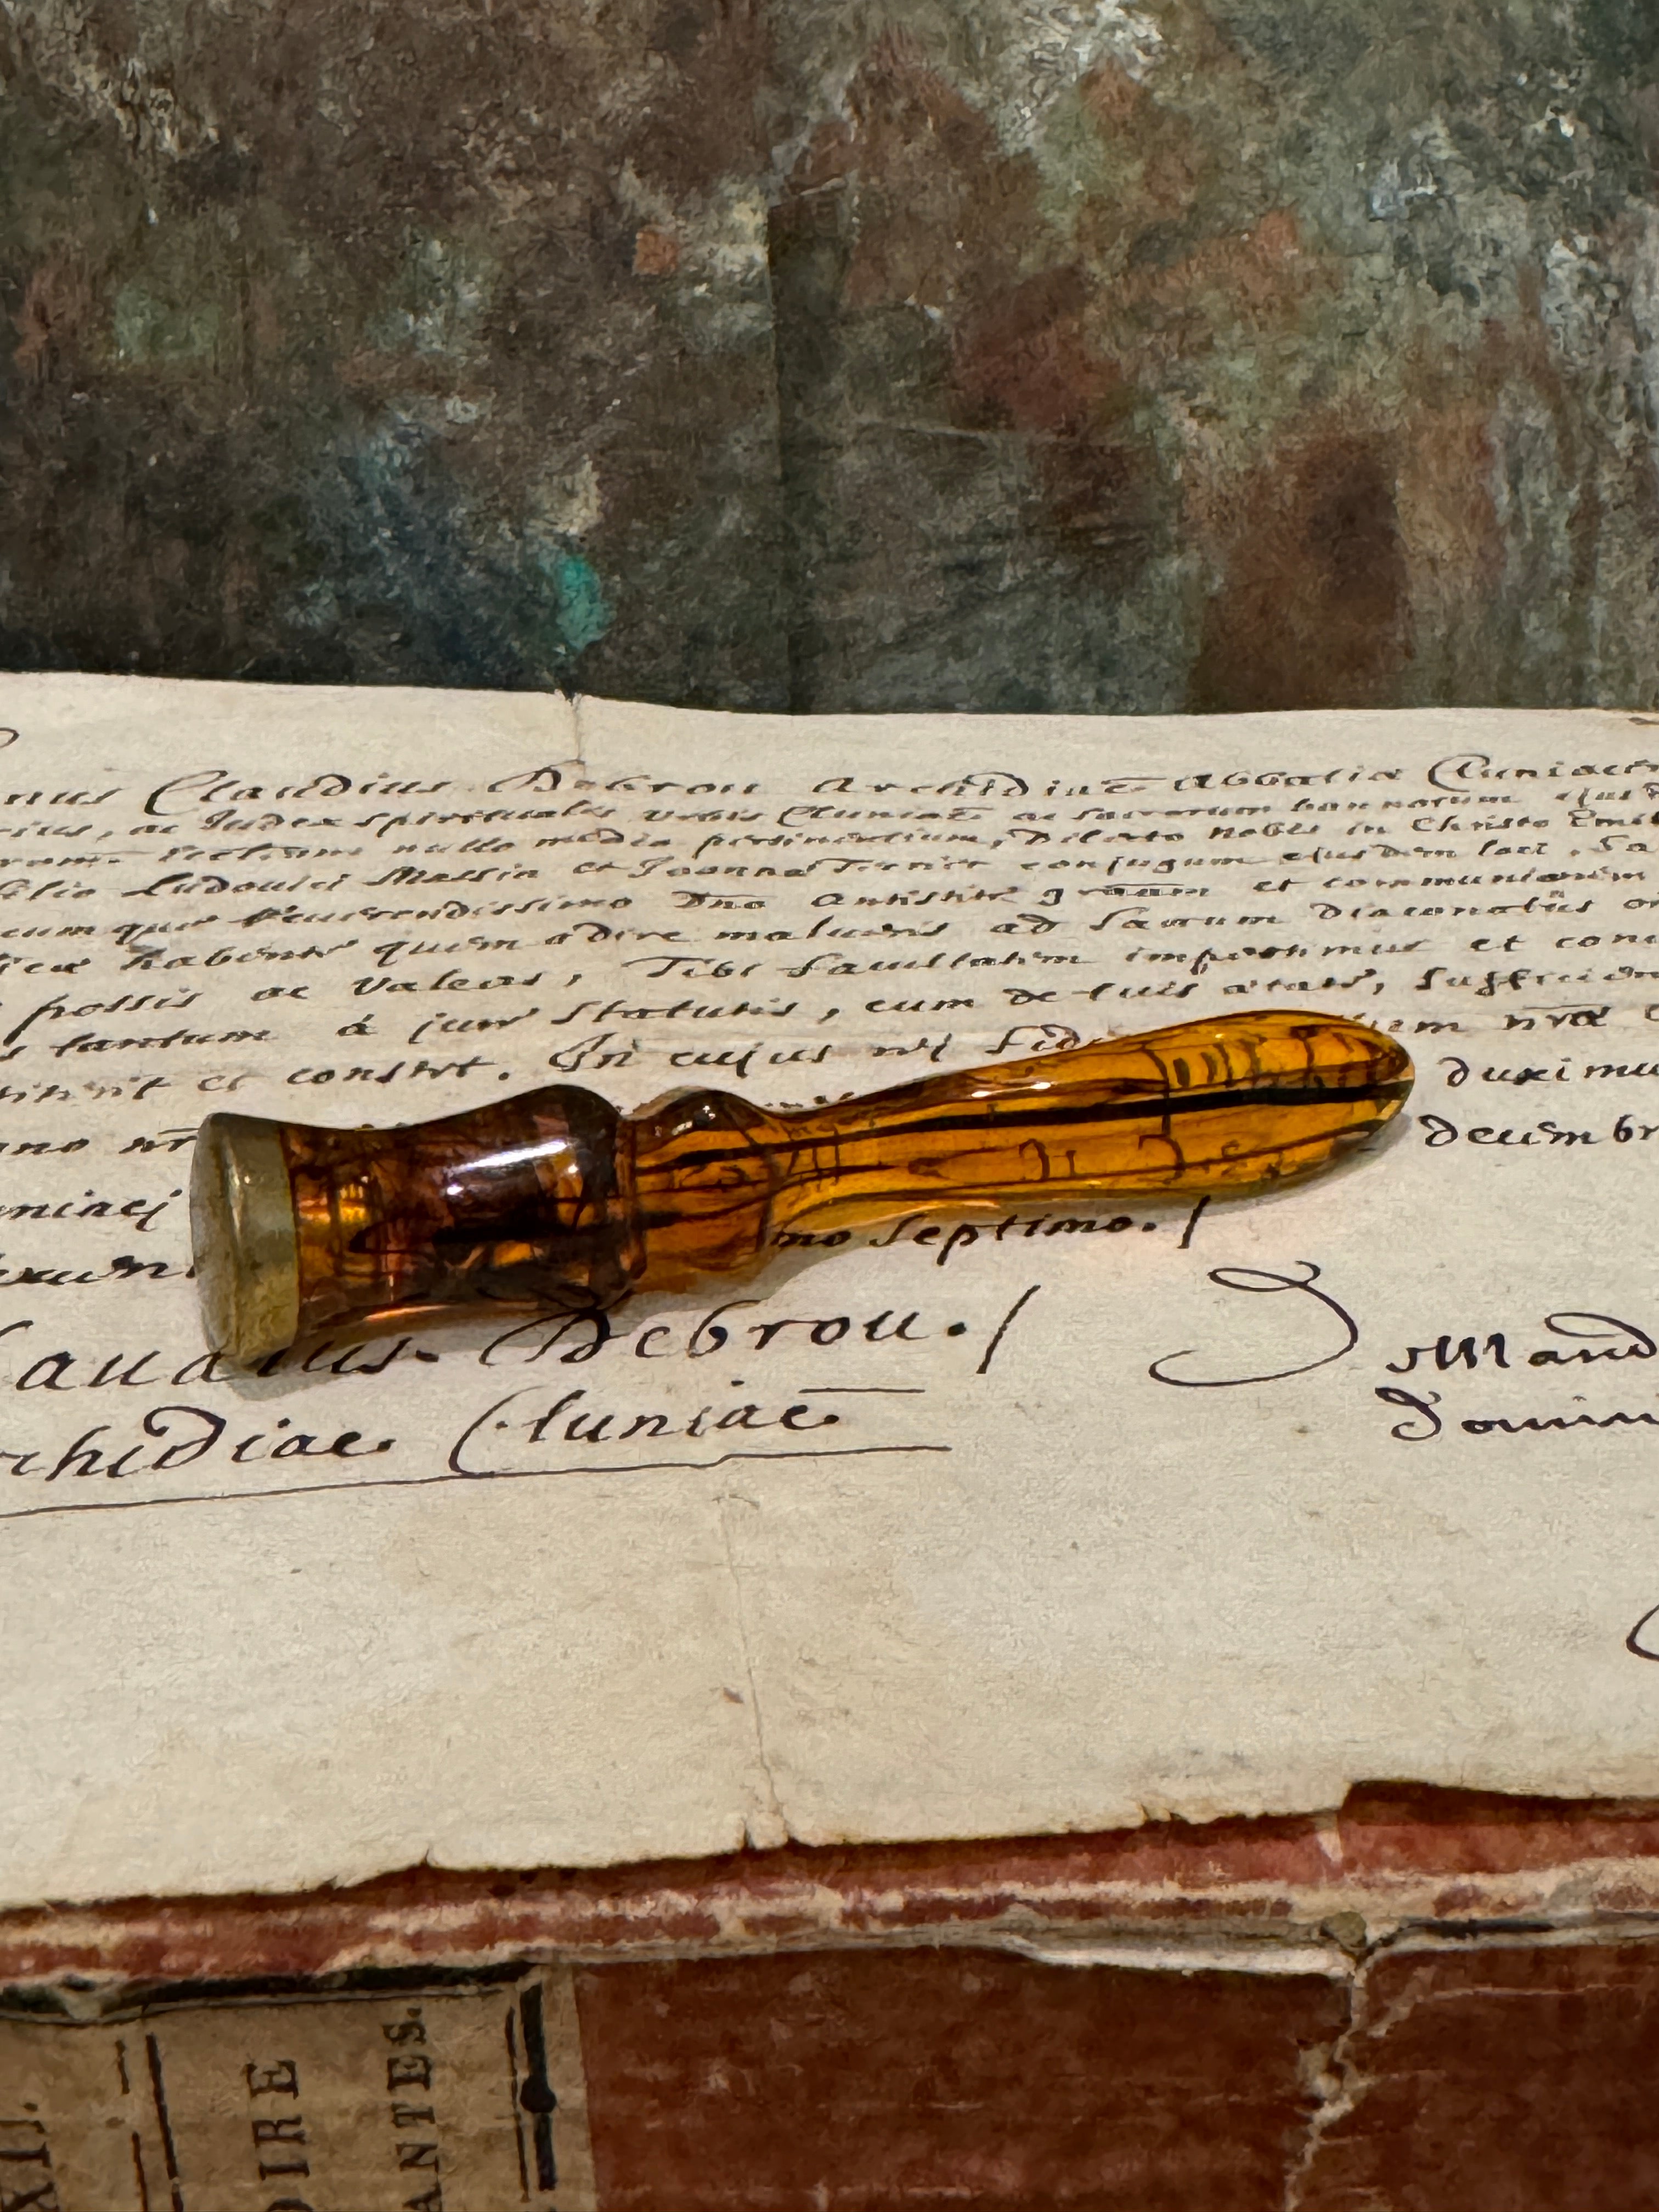 nus Claudius Debrou Archidiac̄ Abbatiæ Cluniacen
ius, ac Judex spiritualis urbis Cluniac̄ ac sacrorum bannorum ejusd
nullo medio pertinentium, Dilecto nobis in Christo Emil
filio Ludouici Massin et Joanna Terrier conjugum ejusdem loci . Sa
cumque Reuerendissimo Dno Antistite graam et communionem
habente quem adire malueris ad Sacrum Diaconatûs or
possis ac Valeas, Tibi facultatem impertimur et conc
s tantum à jure Statutis, cum de tuis ætate, sufficien
et constet. In cujus rei fide em nrã
duximu
no nr decembr
niacj no septimo./
audius Debrou./ Mand
chidiac Cluniac̄ Domin
XII.
OIRE
ANTES.